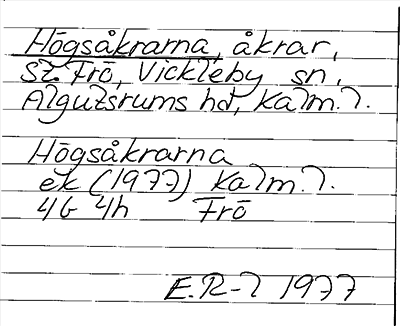 Högsåkrarna, åkrar,
St. Frö, Vickleby sn,
Algutsrums hd, Kalm. l.
Högsåkrarna
ek (1977) Kalm. l.
4G 4h Frö
E.R-l 1977